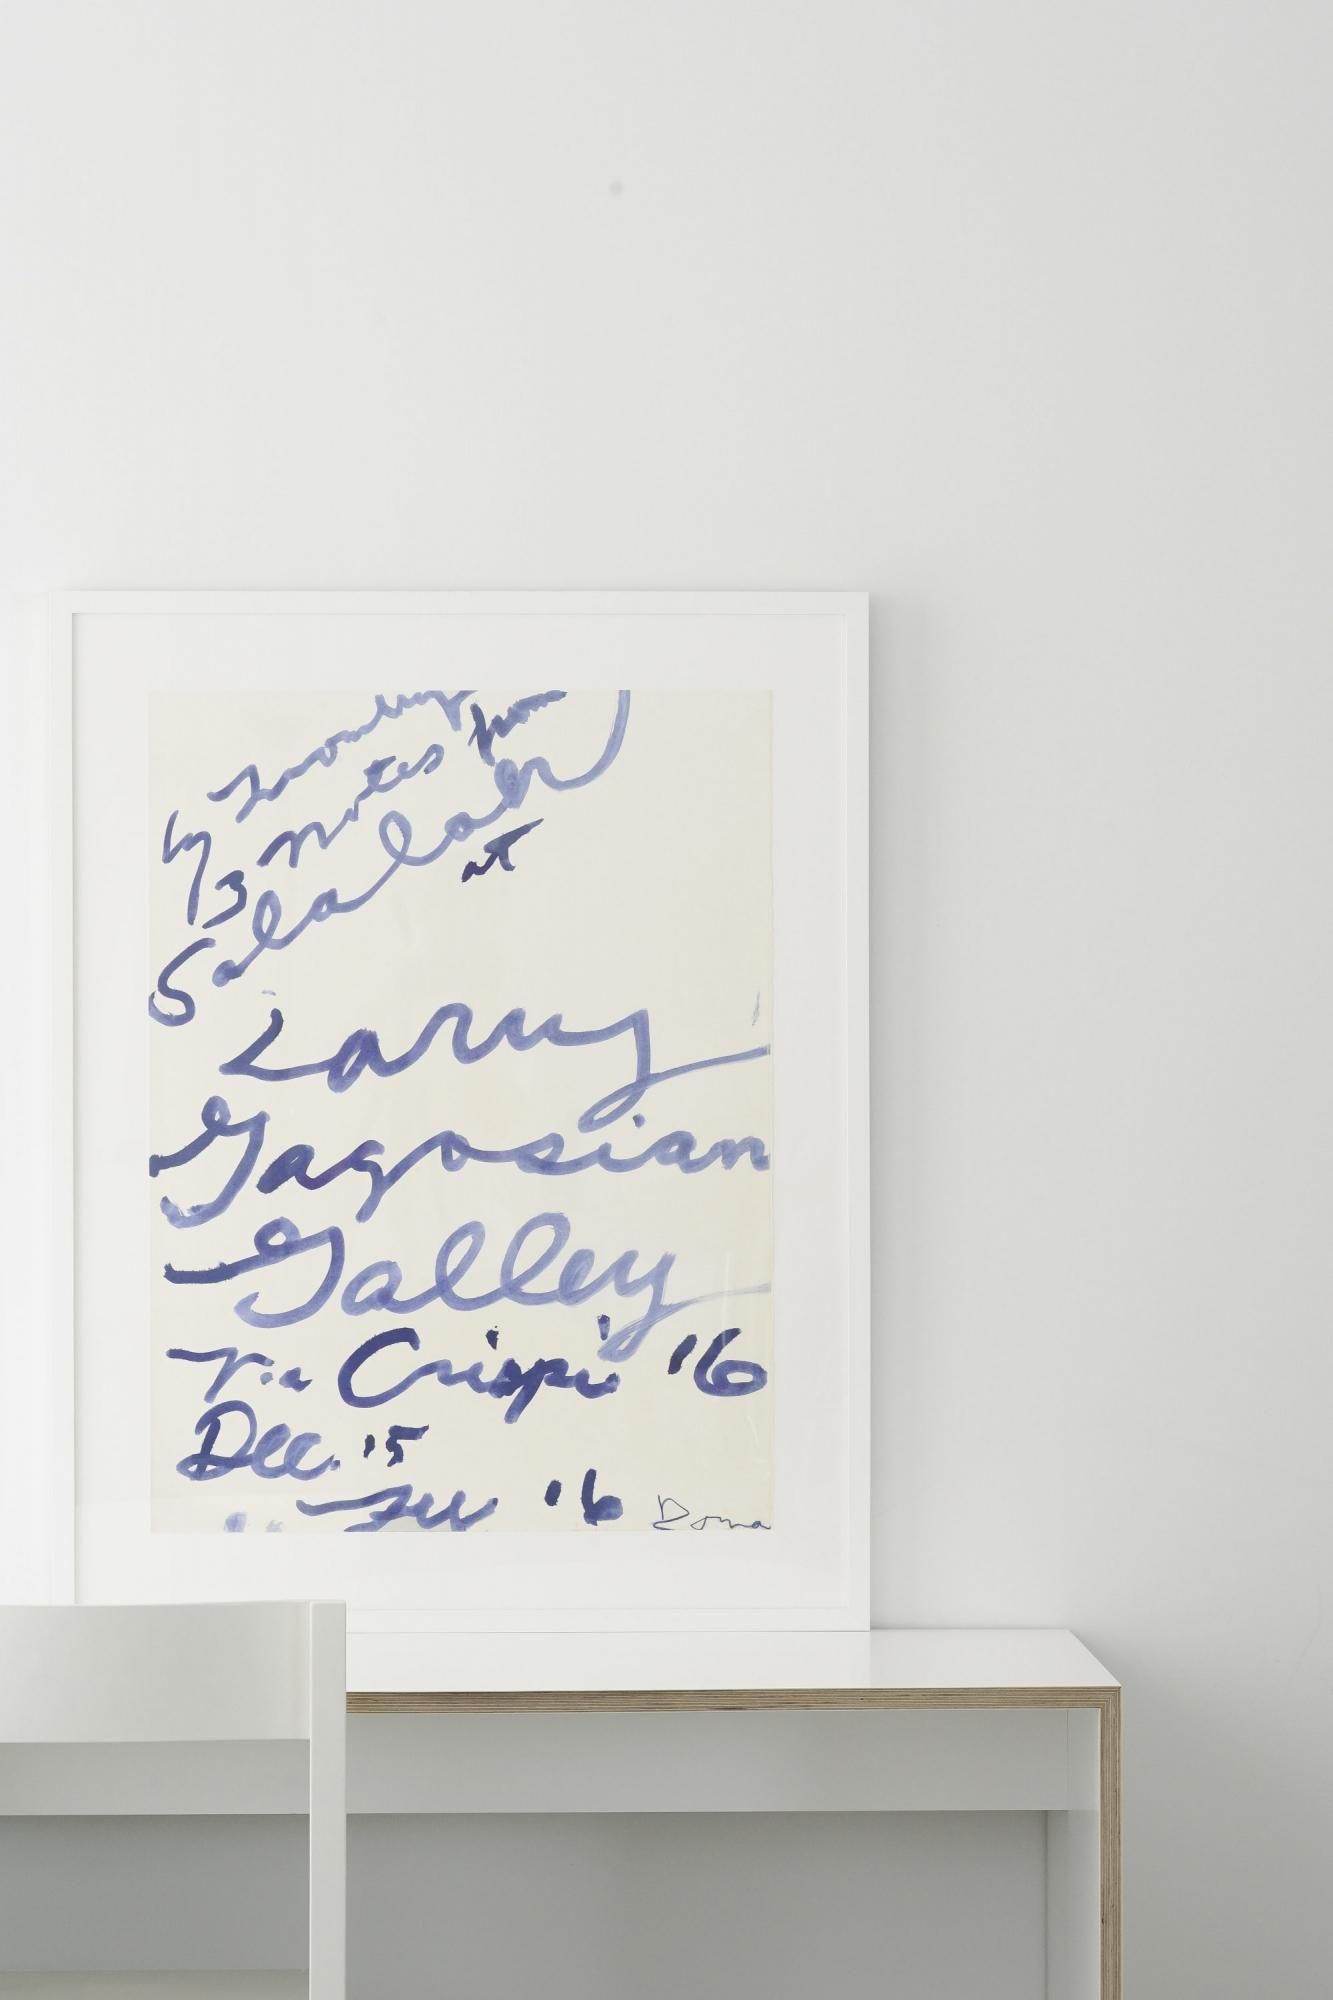 by Twombly
13 notes from
Salalah
at
Larry
Gagosian
Galley
Via Crispi '16
Dec. 15
'16 Roma